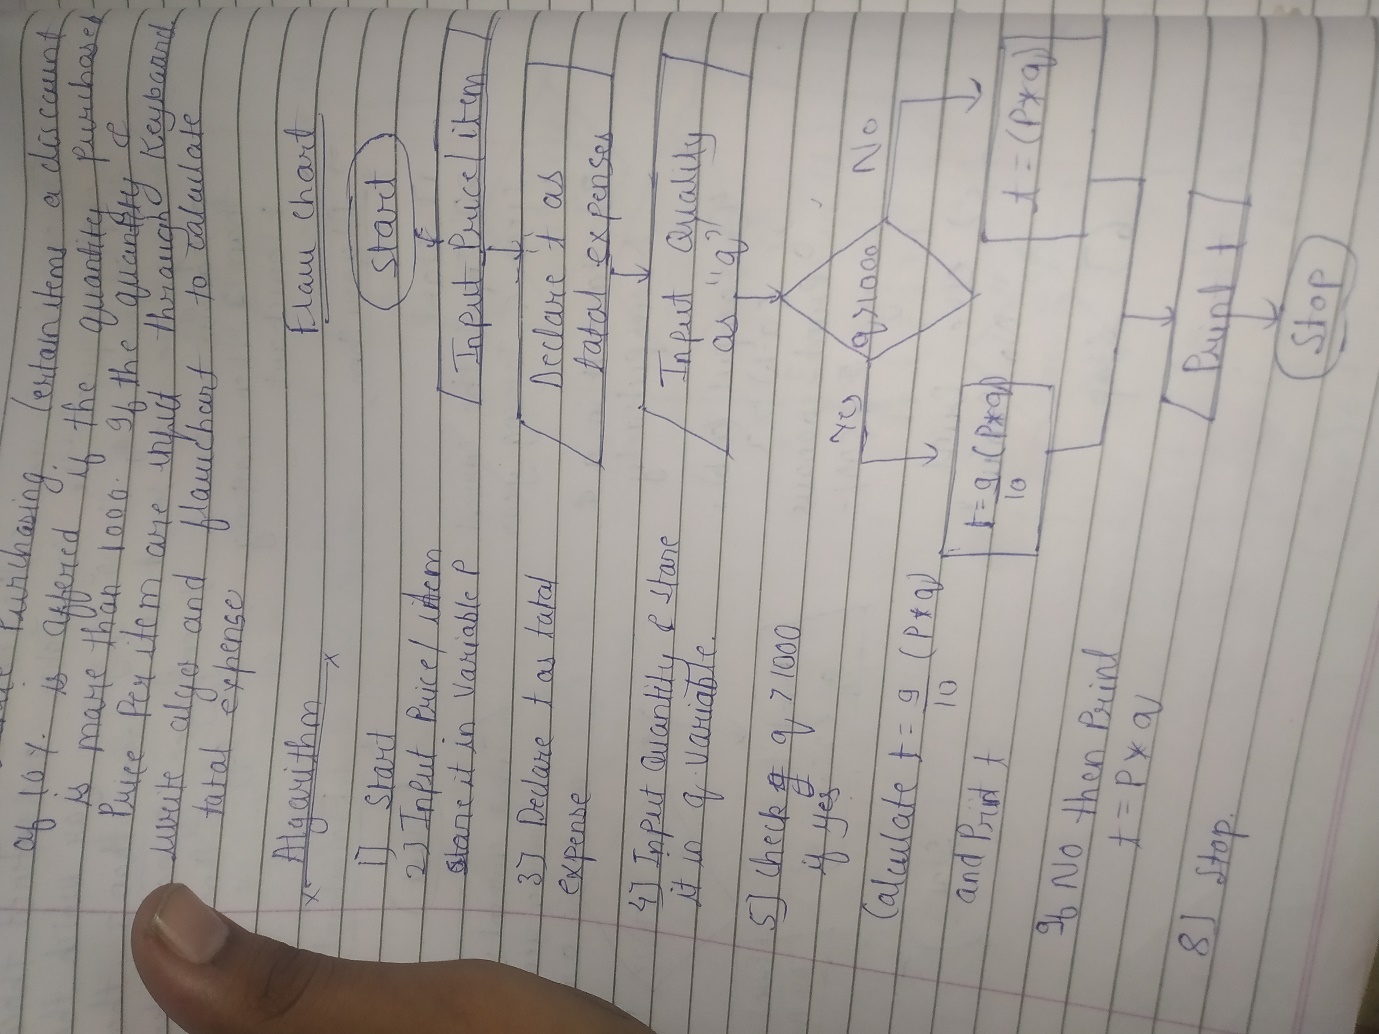 Purchasing certain items a discount
of 10%. is offered if the quantity purchases
is more than 1000. If the quantity &
Price Per item are input through Keyboard
write algo and flowchart to calculate
total expense
Algorithm
1] Start
2] Input Price/item
store it in Variable P
3] Declare t as total
expense
4] Input Quantity & store
it in q variable.
5] Check q q > 1000
if yes
Calculate t = 9/10 (P*q)
and Print t
If No then Print
t = P * q
8] Stop.
Flow chart
Start
Input Price/item
Declare 't as
total expenses
Input Quality
as "q"
q>1000
Yes
No
t = 9/10 (P*q)
t = (P*q)
Print t
Stop